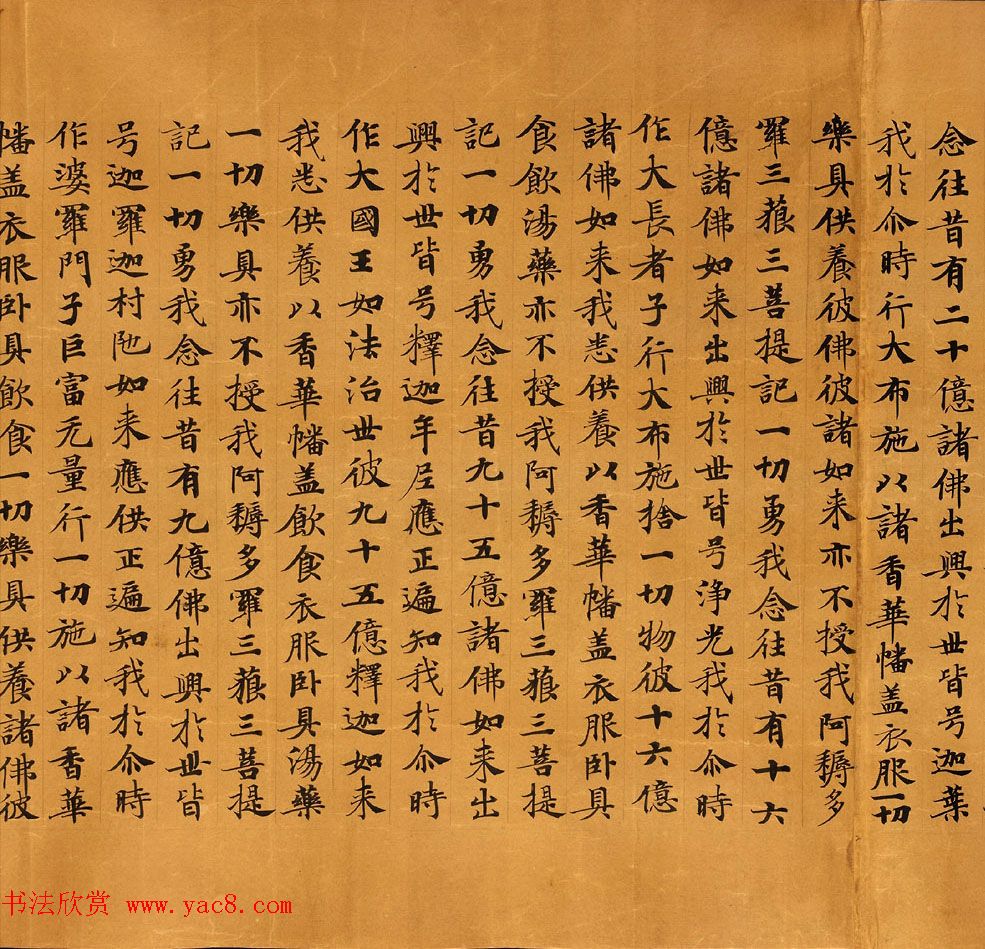 念往昔有二十億諸佛出興於世皆号迦葉
我於尒時行大布施以諸香華幡盖衣服一切
樂具供養彼佛彼諸如来亦不授我阿耨多
羅三藐三菩提記一切勇我念往昔有十六
億諸佛如来出興於世皆号淨光我於尒時
作大長者子行大布施捨一切物彼十六億
諸佛如来我悉供養以香華幡盖衣服卧具
食飲湯藥亦不授我阿耨多羅三藐三菩提
記一切勇我念往昔九十五億諸佛如来出
興於世皆号釋迦年尼應正遍知我於尒時
作大國王如法治世彼九十五億釋迦如来
我悉供養以香華幡盖飲食衣服卧具湯藥
一切樂具亦不授我阿耨多羅三藐三菩提
記一切勇我念往昔有九億佛出興於世皆
号迦羅迦村陁如来應供正遍知我於尒時
作婆羅門子巨富无量行一切施以諸香華
幡盖衣服卧具飲食一切樂具供養諸佛彼
书法欣赏 www.yac8.com